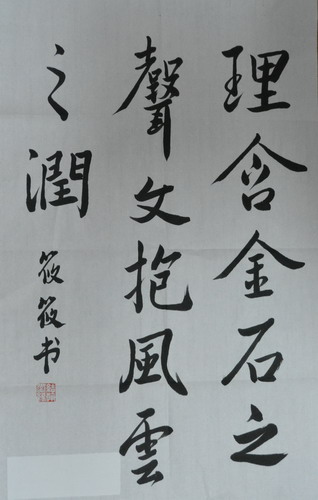 理含金石之
聲文抱風雲
之潤
筱筱书